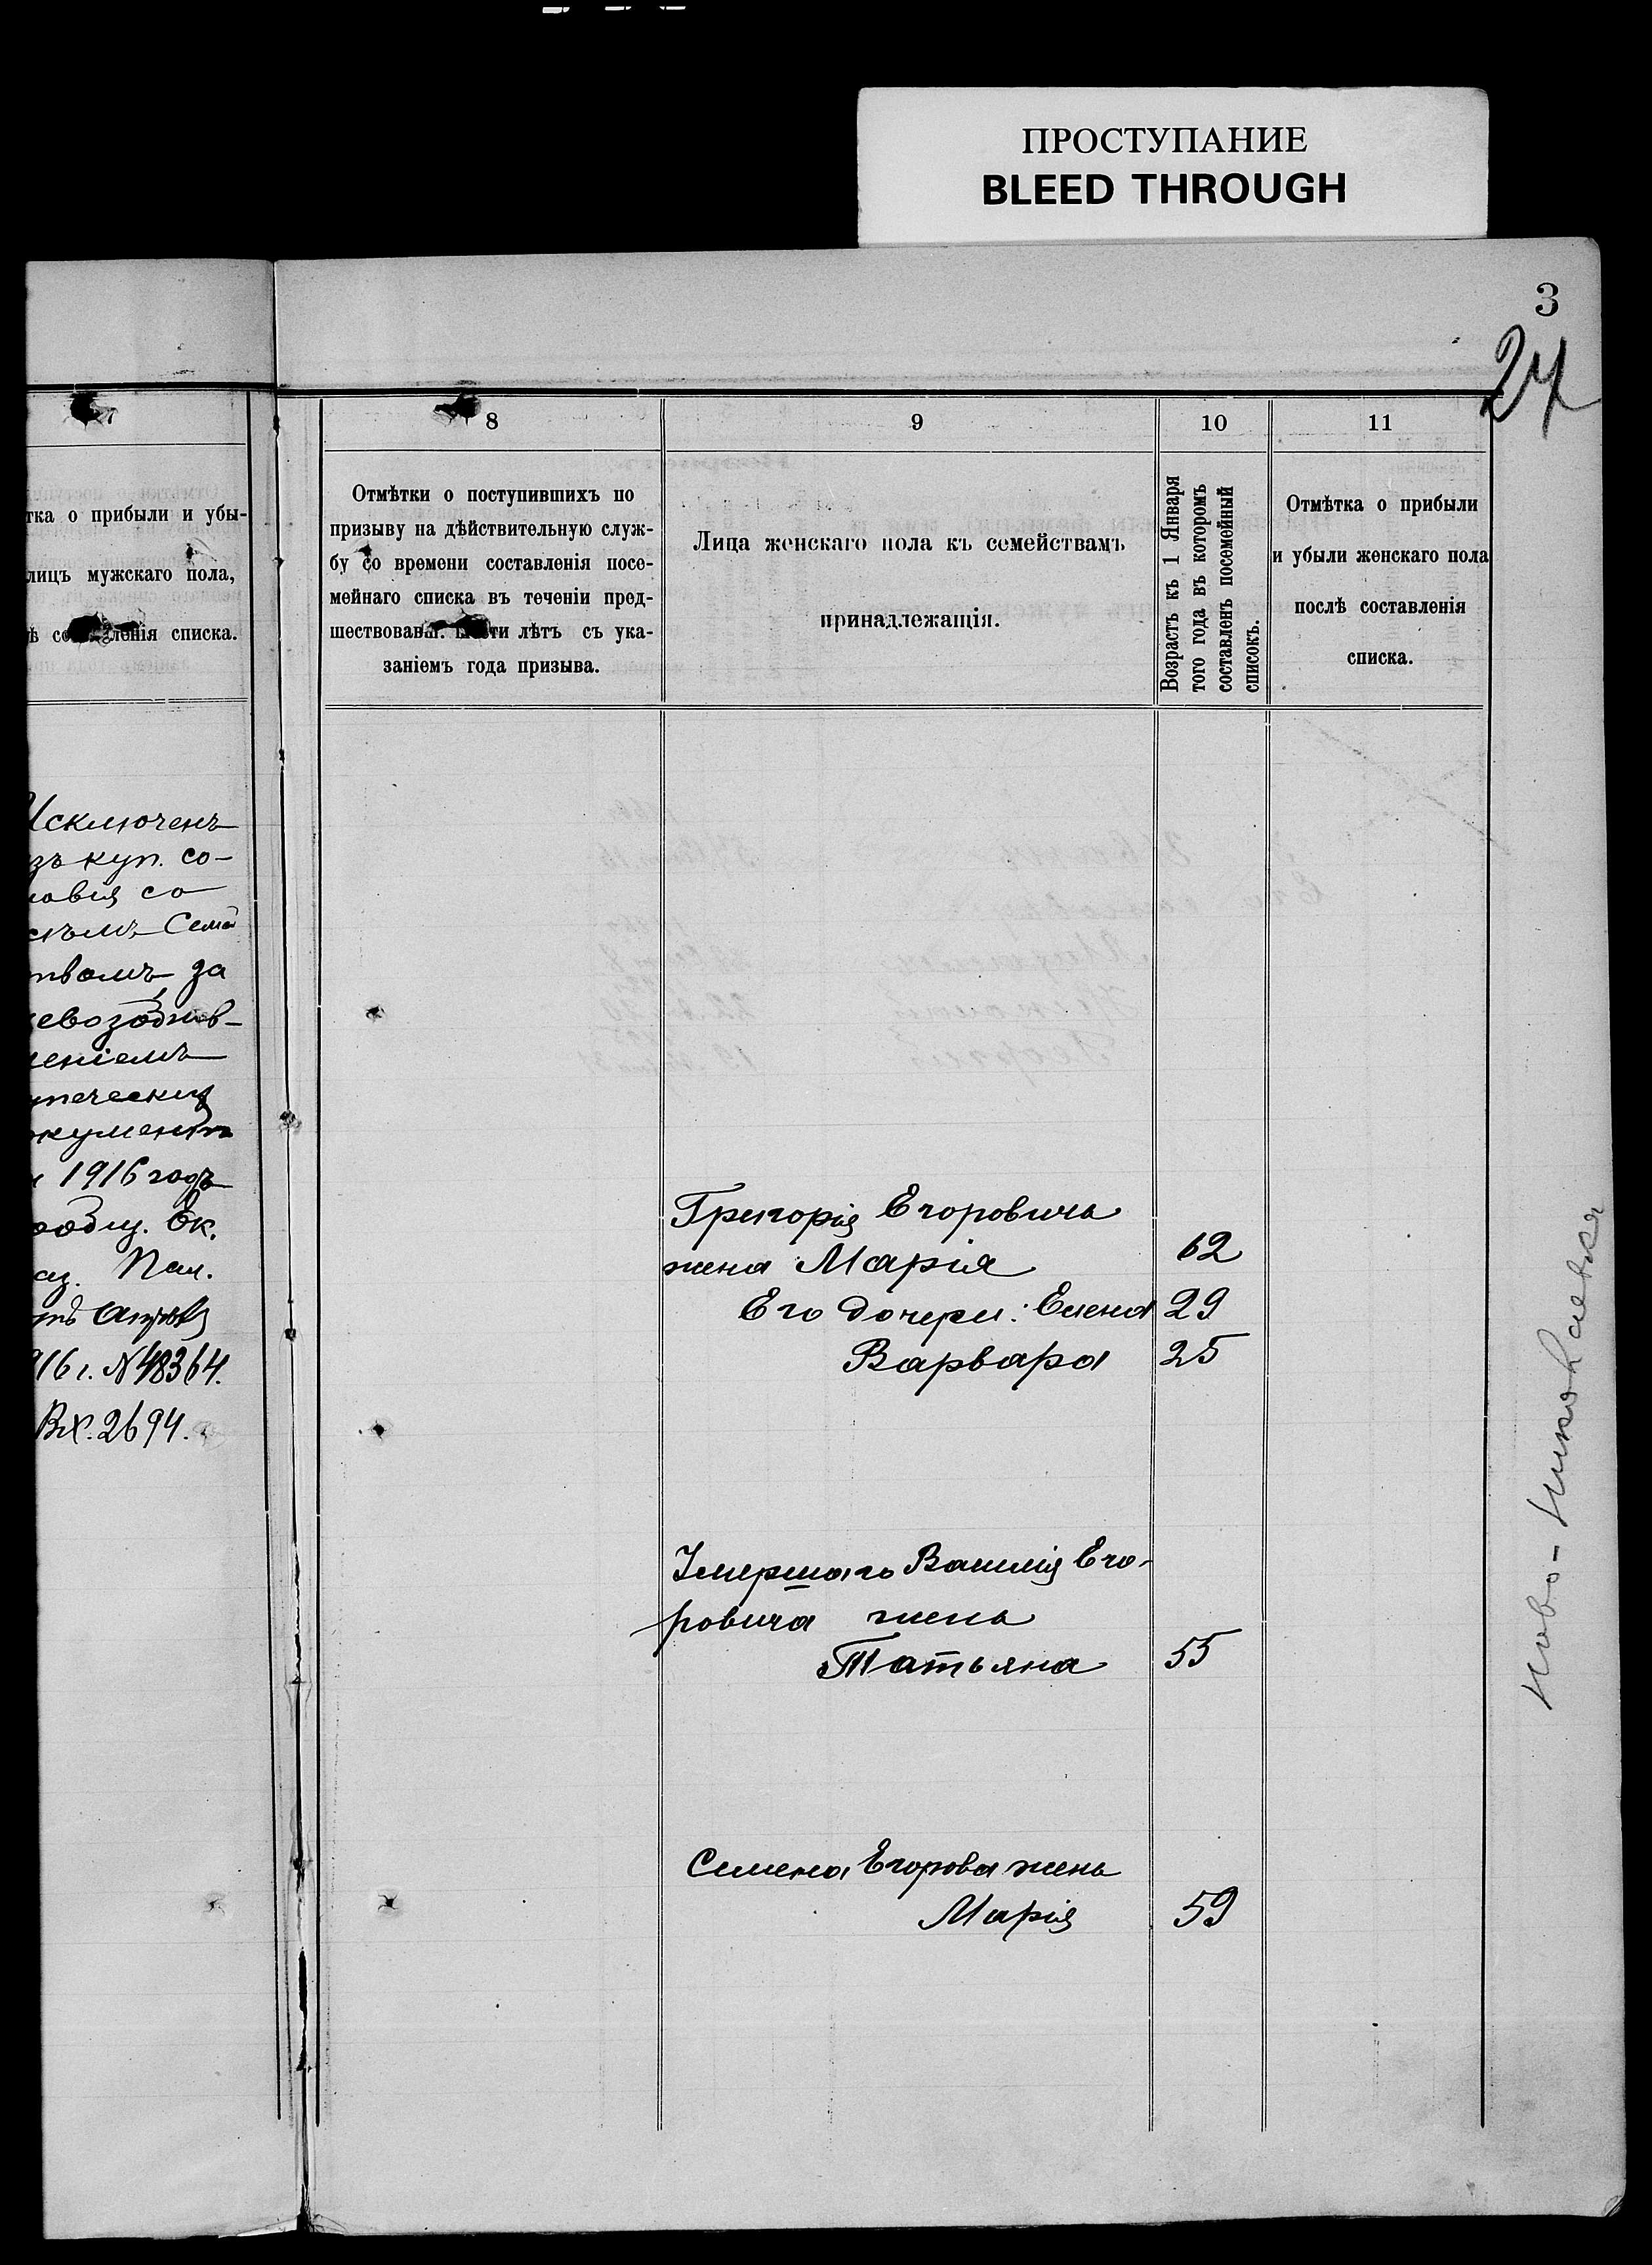 ПРОСТУПАНИЕ
BLEED THROUGH
3
27
7
тка о прибыли и убы-
лицъ мужскаго пола,
ѣ составленія списка.
Исключенъ
зъ куп. со-
ловія со
Семей
ствомъ за
невозобнов-
леніемъ
упеческих
окументъ
1916 годъ
Ек.
Каз. Пал.
916 г. N48364.
Вх. 2694.
8
Отмѣтки о поступившихъ по
призыву на дѣйствительную служ-
бу со времени составленія посе-
мейнаго списка въ теченіи пред-
шествовавш. шести лѣтъ съ ука-
заніемъ года призыва.
9
Лица женскаго пола къ семействамъ
принадлежащія.
10
Возрастъ къ 1 Января
того года въ которомъ
составленъ посемейный
списокъ.
11
Отмѣтка о прибыли
и убыли женскаго пола
послѣ составленія
списка.
Григорія Егоровича
жена Марія 62
Его дочери: Елена 29
Варвара 25
Умершаго Василія Его-
ровича жена
Татьяна 55
Семена Егорова жена
Марія 59
Ново-Николаевся